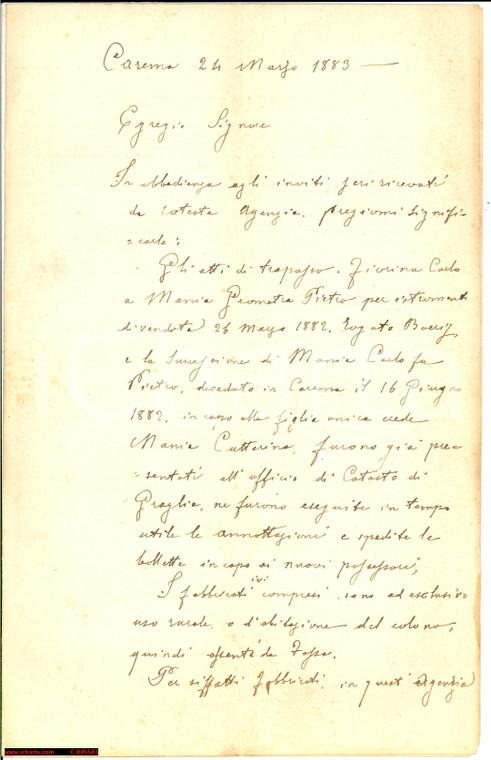 Carema 24 Marzo 1883
Egregio Signore
In obbedienza agli inviti jeri ricevuti
da cotesta Agenzia, pregiomi signifi=
=carle:
Gli atti di trapasso. Fiorina Carlo
a Mania Geometra Pietro per istrumenti
di vendita 26 Marzo 1882. Rogato
e la Successione di Mania Carlo fu
Pietro, deceduto in Carema il 16 Giugno
1882, in capo alla figlia unica erede
Mania Catterina, furono già pre
=sentati all'ufficio di Catasto di
Graglia, ne furono eseguite in tempo
utile le annottazioni e spedite le
bollette in capo ai nuovi possessori,
I fabbricati ivi compresi, sono ad esclusivo
uso rurale, o d'abitazione del colono,
quindi esenti da Tassa.
Per siffatti fabbricati, in quest'Agenzia
www.icharta.com C-895583